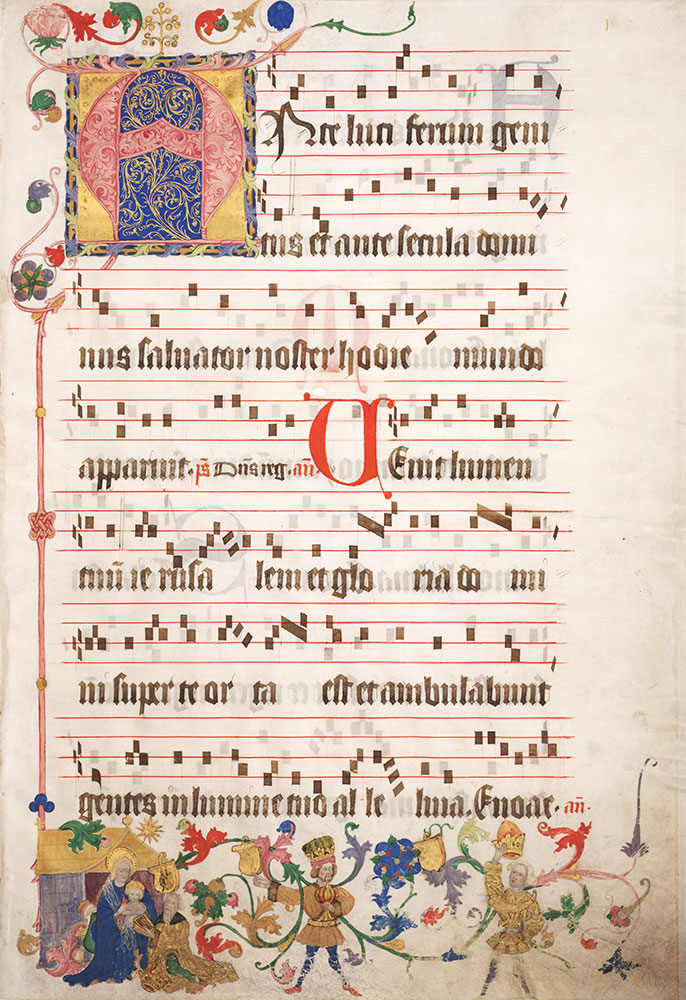 Ante luci ferum geni
tus et ante secula domi
nus saluator noster hodie mundo
apparuit. ps Dns reg. an. Uenit lumen
tuu ie rusa lem et glo ria do mi
ni super te or ta est et ambulabunt
gentes in lumine tuo al le luia. Euouae. an.